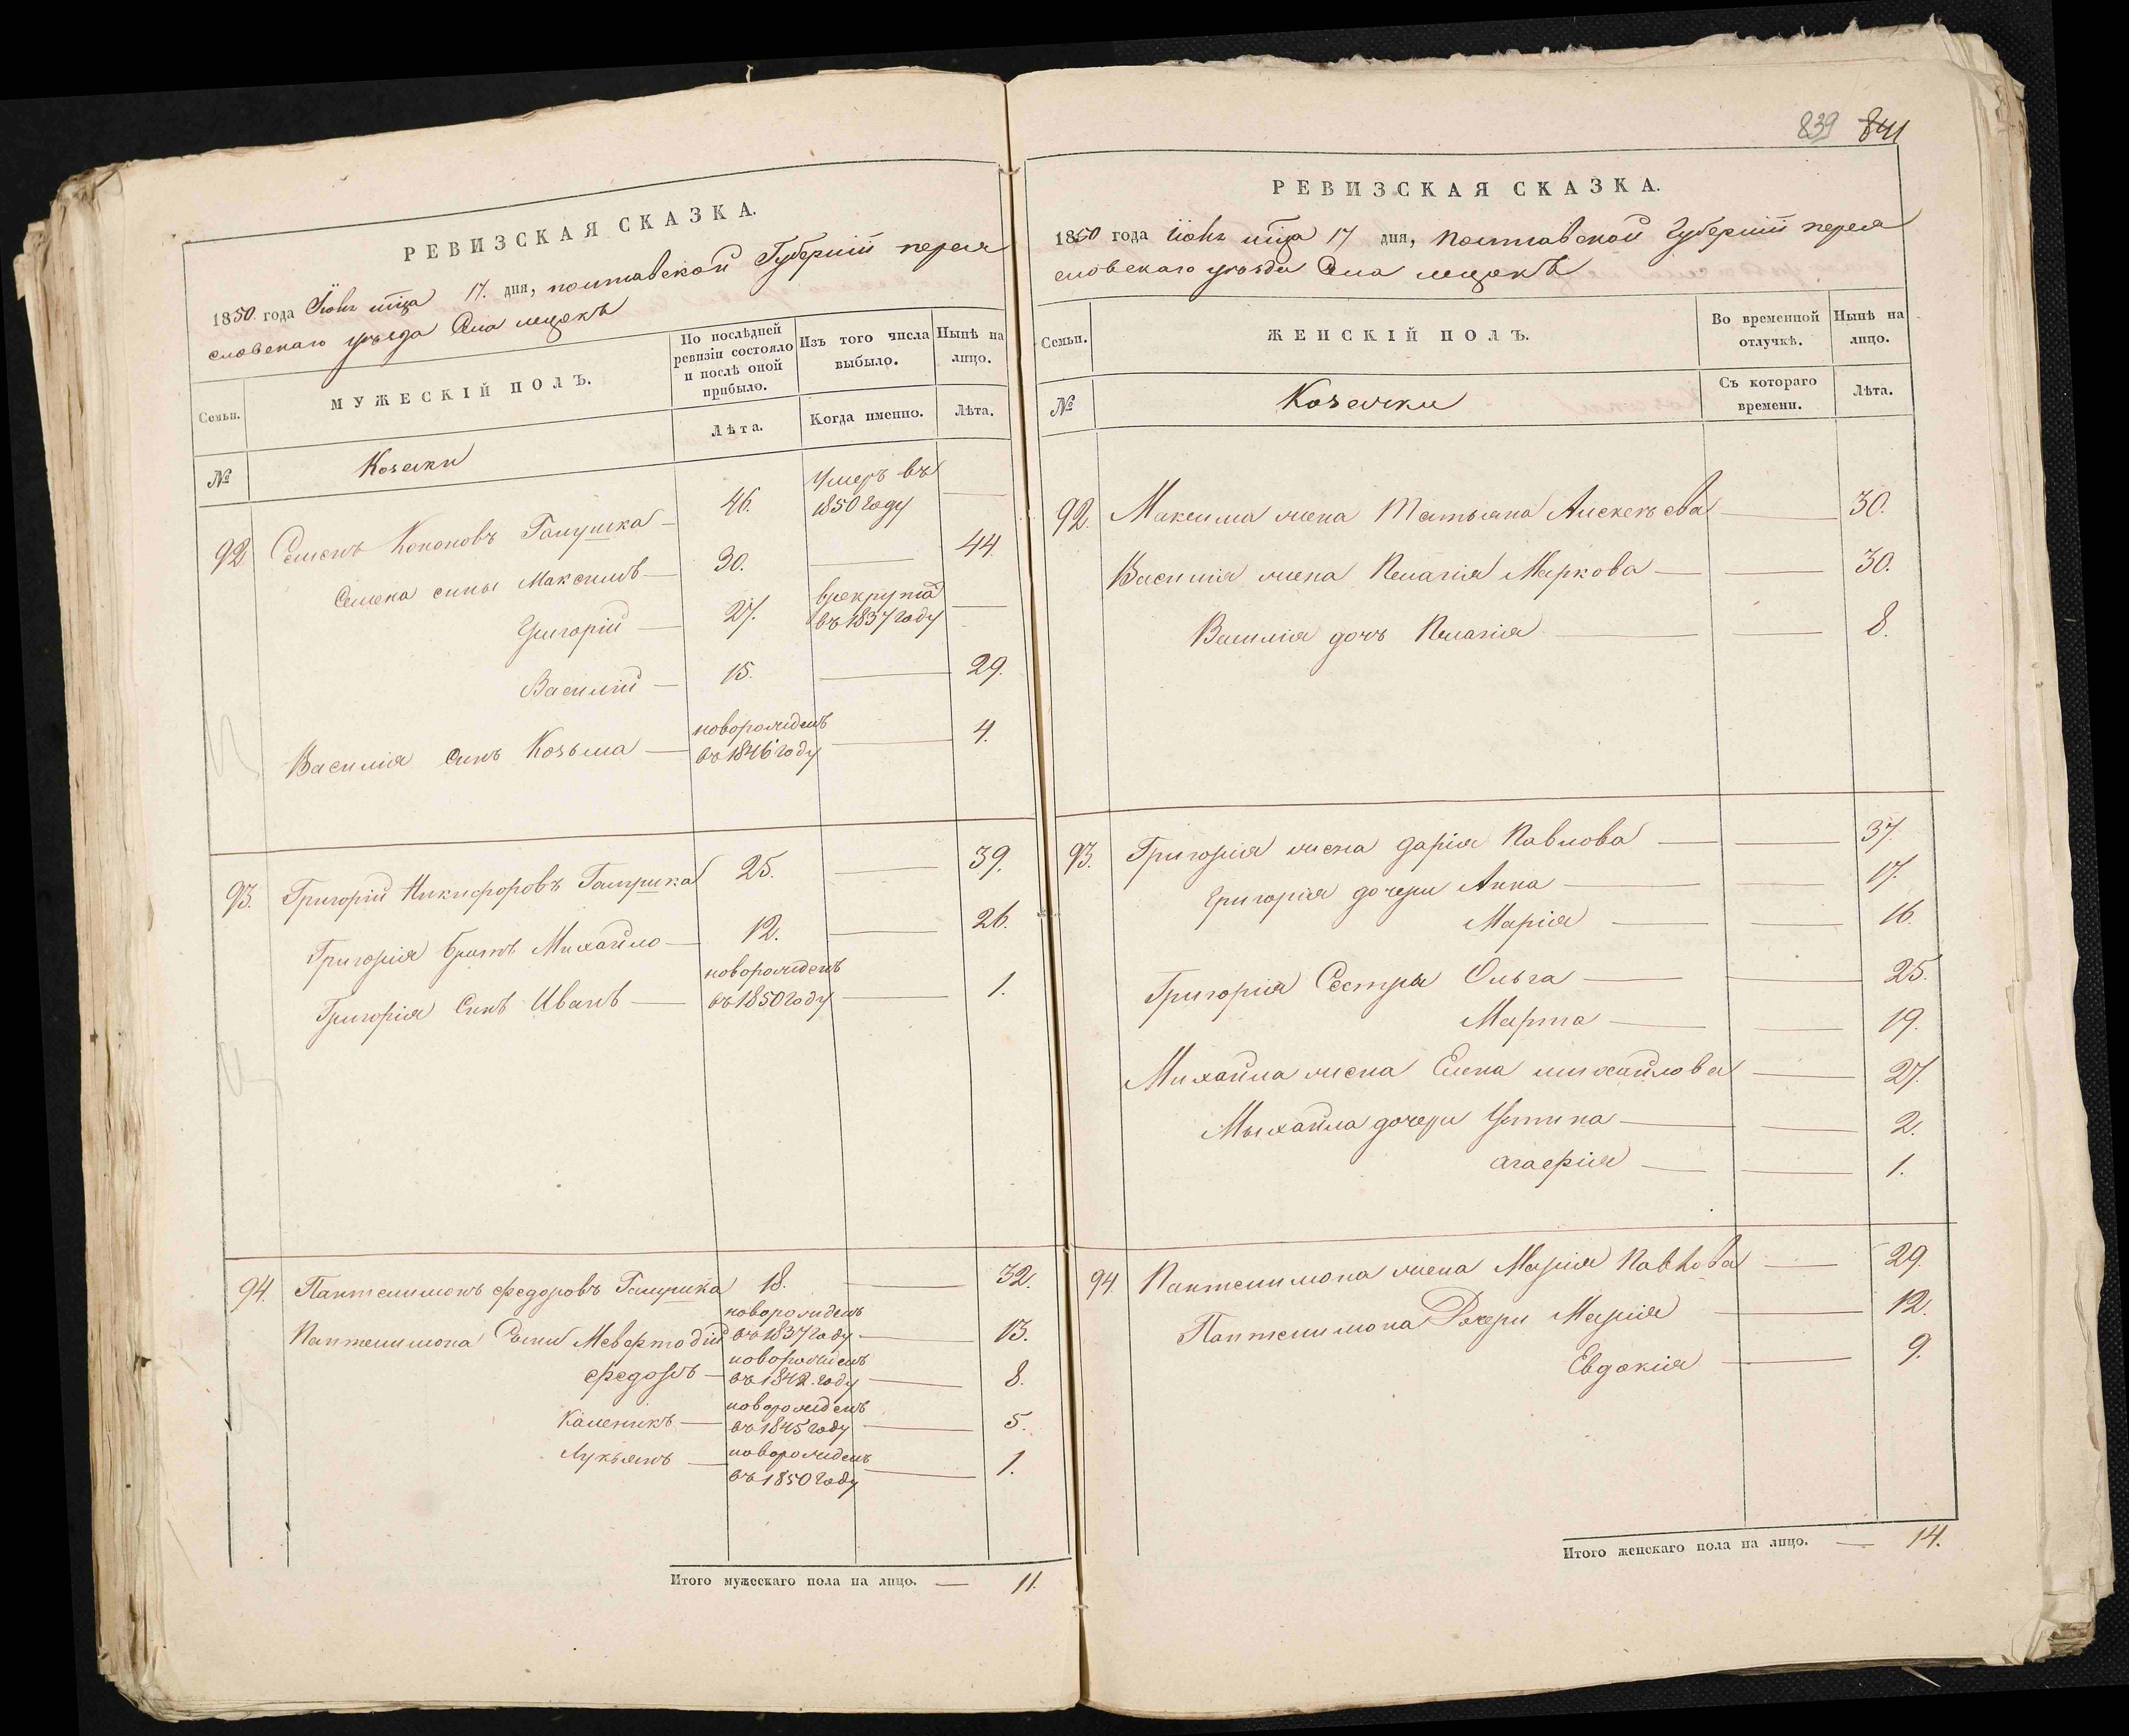 РЕВИЗСКАЯ СКАЗКА.
1850 года Іюнь мца 17. дня, полтавской Губерніи перея
словскаго уезда Села
Семьи.
МУЖЕСКІЙ ПОЛЪ.
По послѣдней ревизіи состояло и послѣ оной прибыло.
Изъ того числа выбыло.
Нынѣ на лицо.
№
Козаки
Лѣта.
Когда именно.
Лѣта.
92. Семенъ Кононовъ Галушка — 46. Умеръ въ 1850 году —
Семена сины Максимъ — 30. — 44.
Григорій — 27. врекрута въ 1837 году —
Василій — 15. — 29.
Василія синъ Козьма — новорожденъ въ 1846 году — 4.
93. Григорій Никифоровъ Галушка 25. — 39.
Григорія братъ Михайло — 12. — 26.
Григорія Синъ Иванъ — новорожденъ въ 1850 году — 1.
94. Пантелимонъ федоровъ Галушка 18. — 32.
Пантелимона Сыни новорожденъ въ 1837 году — 13.
федоръ — новорожденъ въ 1842 году — 8.
Каленикъ — новорожденъ въ 1845 году — 5.
Лукьянъ — новорожденъ въ 1850 году — 1.
Итого мужескаго пола на лицо. — 11.
839 841
РЕВИЗСКАЯ СКАЗКА.
1850 года Іюнь мца 17 дня, полтавской Губерніи перея
словскаго уезда Села
Семьи.
ЖЕНСКІЙ ПОЛЪ.
Во временной отлучкѣ.
Нынѣ на лицо.
№
Козачки
Съ котораго времени.
Лѣта.
92. Максима жена Татьяна Алексеева — 30.
Василія жена Пелагія Маркова — — 30.
Василія дочь Пелагія — — 8.
93. Григорія жена дарія Павлова — — 37.
Григорія дочери Анна — — 17.
Марія — — 16.
Григорія Сестры Ольга — — 25.
Марта — — 19.
Михайла жена Елена михайлова — 27.
Михайла дочери Устина — — 2.
агафія — — 1.
94. Пантелимона жена Марія Павлова — 29.
Пантелимона Дочери Марія — 12.
Евдокія — 9.
Итого женскаго пола на лицо. — 14.